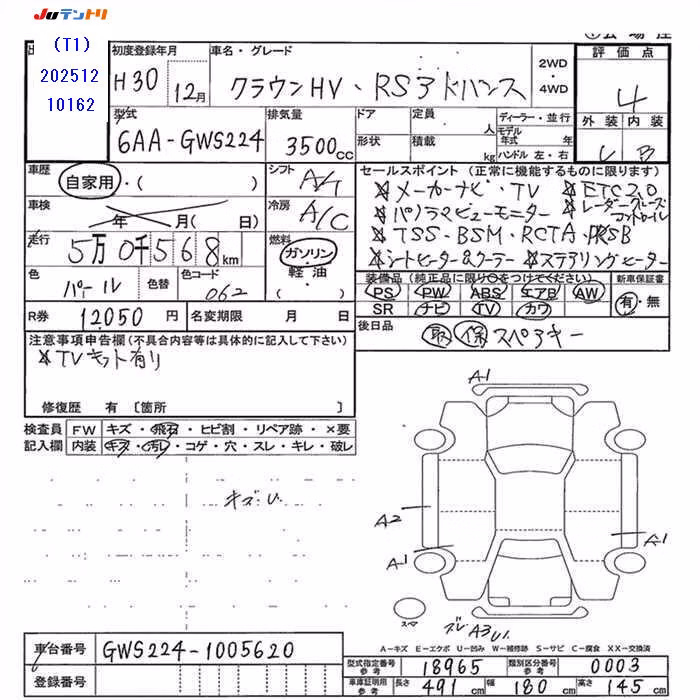 JUテントリ
(T1)
202512
10162
初度登録年月
H30 12月
車名・グレード
クラウンHV・RSアドバンス
2WD
・
4WD
評価点
4
外装 内装
B
型式
6AA-GWS224
排気量
3500cc
ドア
形状
定員 人
積載 kg
ディーラー・並行
モデル年式 年
ハンドル 左・右
車歴
自家用・( )
シフト
A/T
車検
年 月( 日)
冷房
A/C
走行
5万0千568km
燃料
ガソリン・
軽油・
( )
色
パール
色替
色コード
062
R券 12050円
名変期限 月 日
セールスポイント(正常に機能するものに限ります)
メーカーナビ・TV ETC2.0
パノラマビューモニター レーダークルーズコントロール
TSS・BSM・RCTA・PKSB
シートヒーター&クーラー ステアリングヒーター
装備品(純正品に限り○をつけてください)
PS PW ABS エアB AW
SR ナビ TV カワ
新車保証書
有・無
後日品
取 保 スペアキー
注意事項申告欄(不具合内容等は具体的に記入して下さい)
TVキット有り
修復歴 有〔箇所 〕
検査員 FW キズ・飛石・ヒビ割・リペア跡・×要
記入欄 内装 キズ・汚レ・コゲ・穴・スレ・キレ・破レ
キズ・U
A-1
A2
A-1
A-1
スマ
A3U1
A-キズ E-エクボ U-凹み W-補修跡 S-サビ C-腐食 XX-交換済
車台番号 GWS224-1005620
登録番号
型式指定番号 参考 18965 類別区分番号 参考 0003
車庫証明用 参考 長さ 491cm 幅 180cm 高さ 145cm